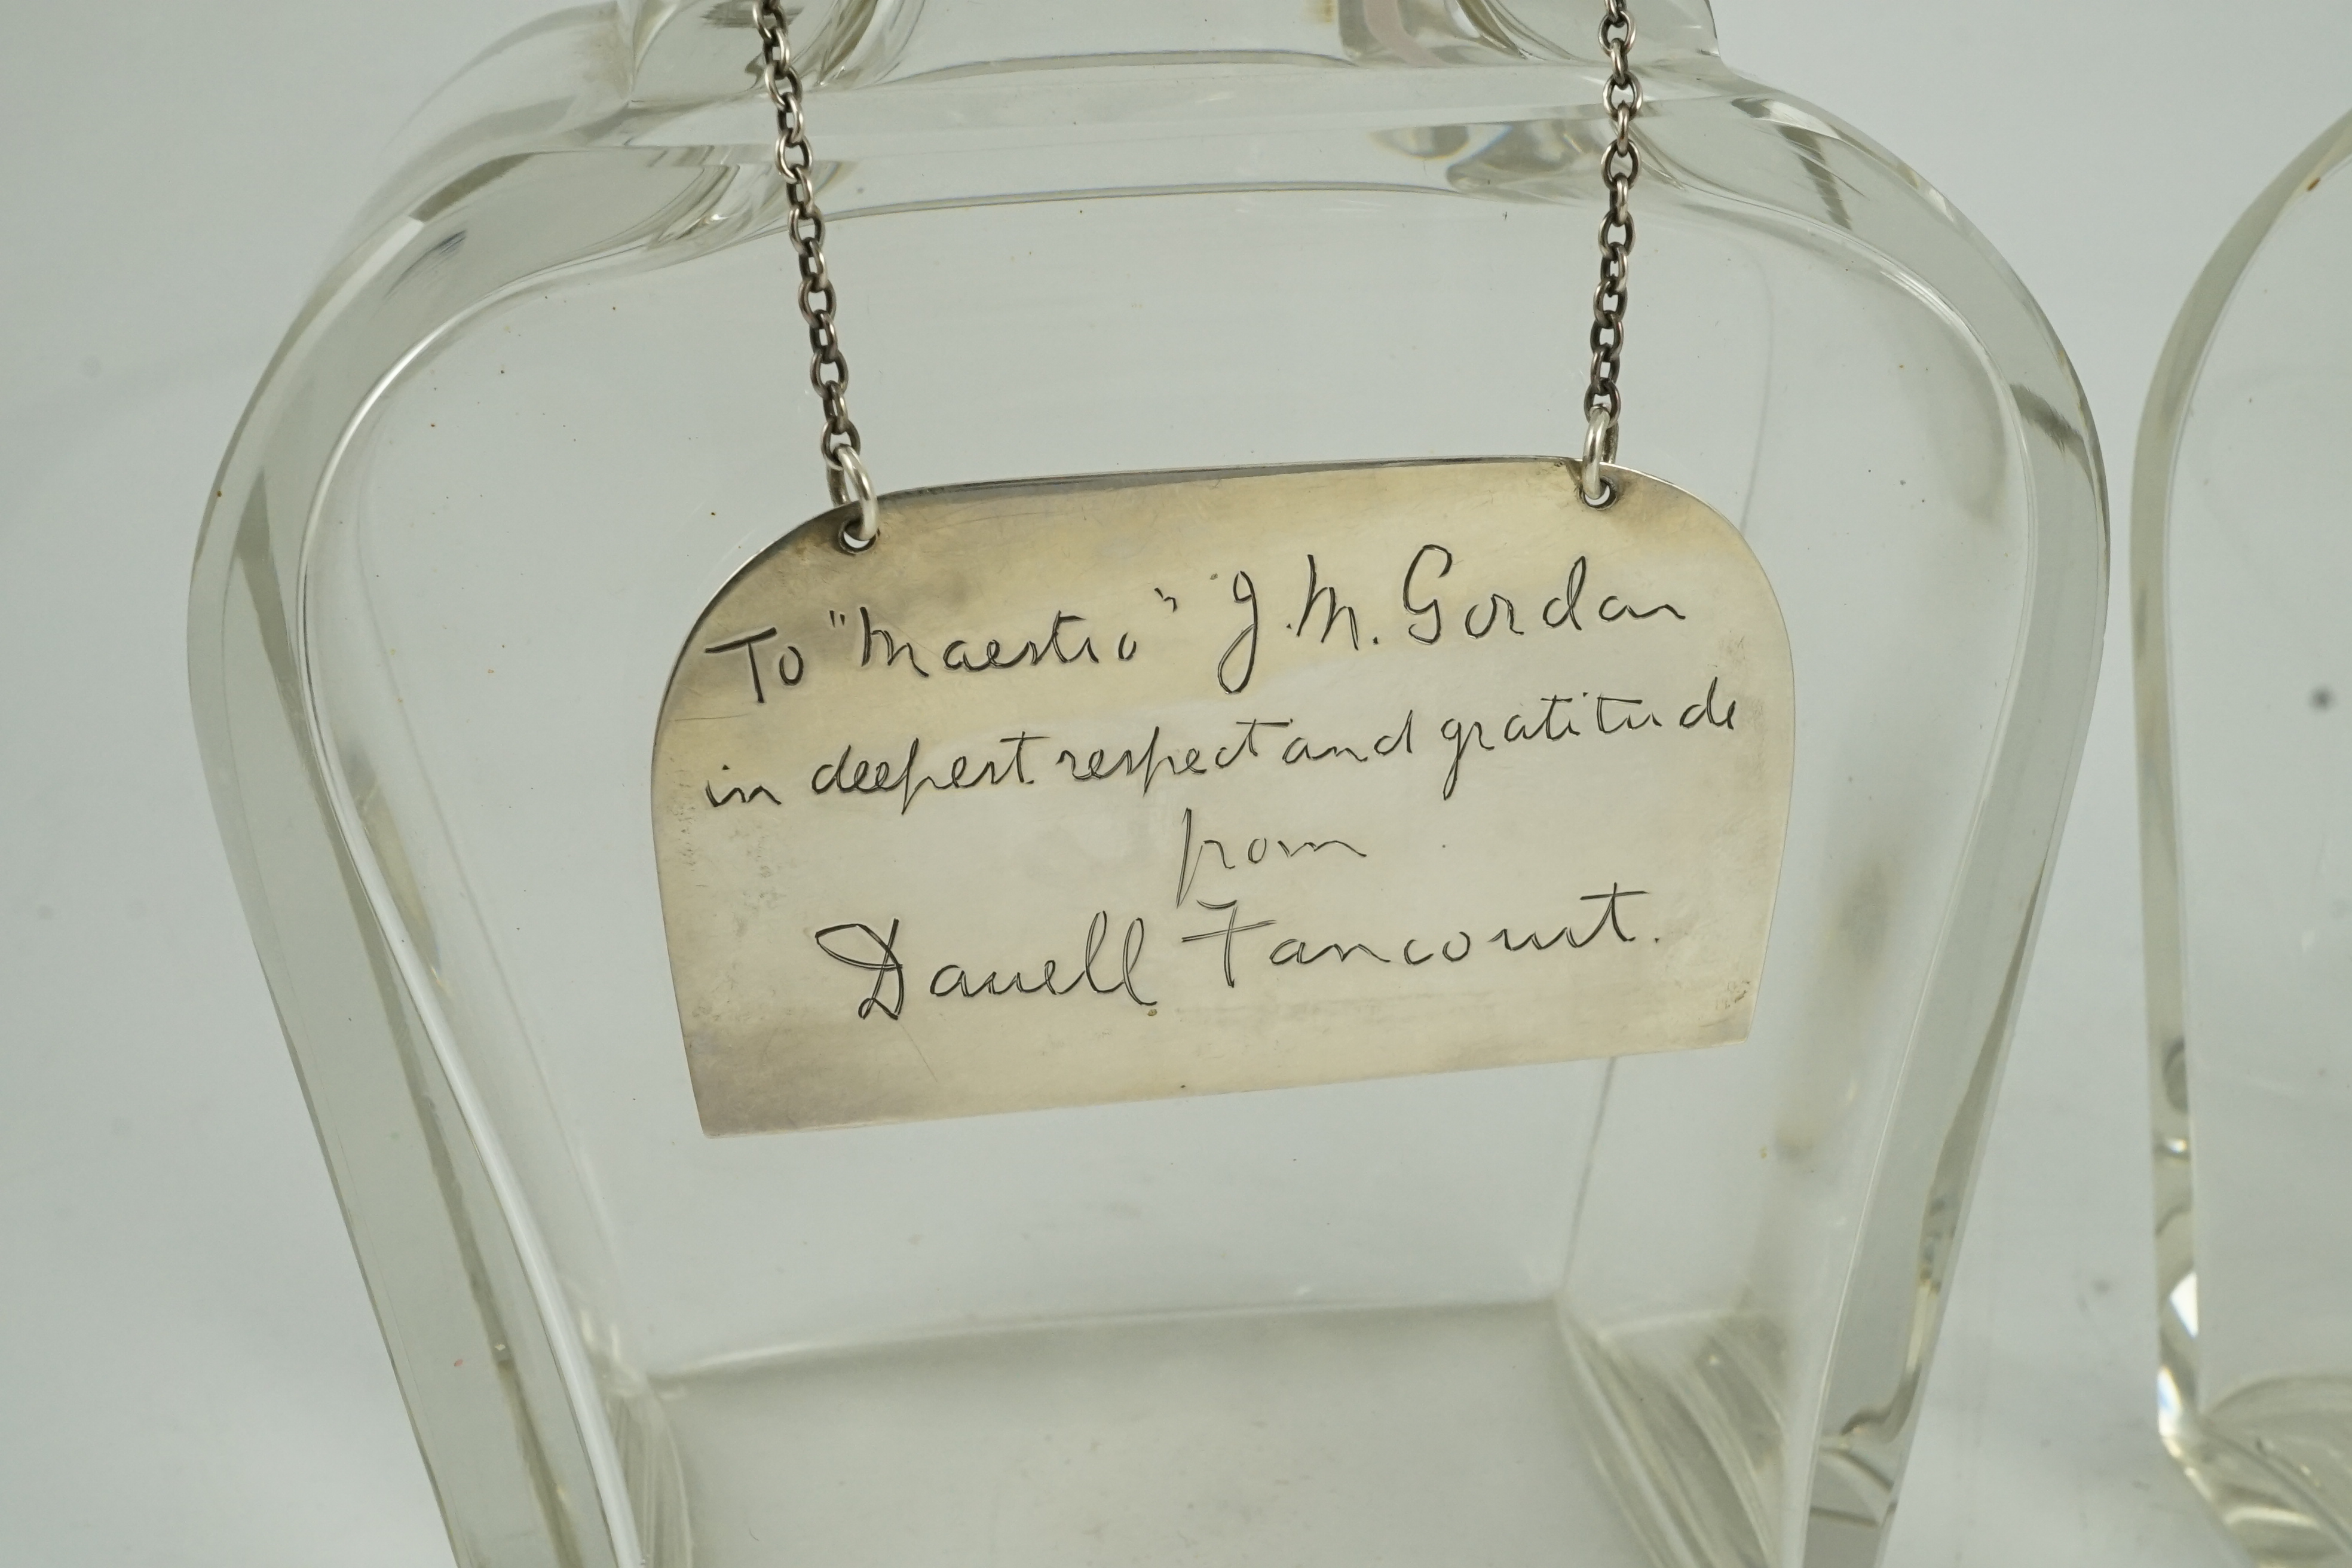 To "Maestro" J.M. Gordon
in deepest respect and gratitude
from
Darrell Fancourt.